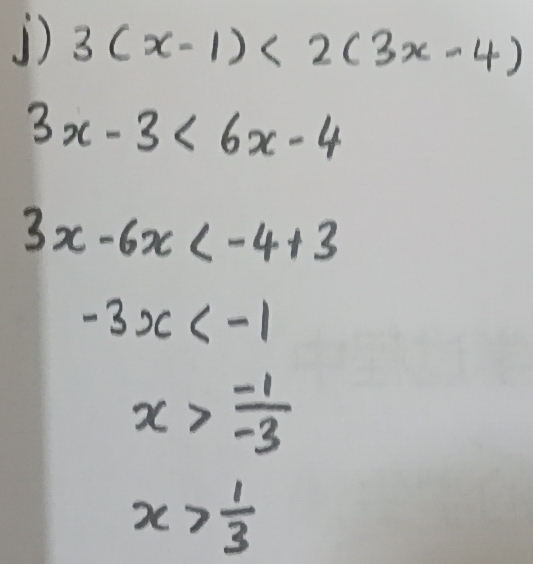 j) 3(x-1) < 2(3x-4)
3x-3 < 6x-4
3x-6x < -4+3
-3x < -1
x > \frac{-1}{-3}
x > \frac{1}{3}